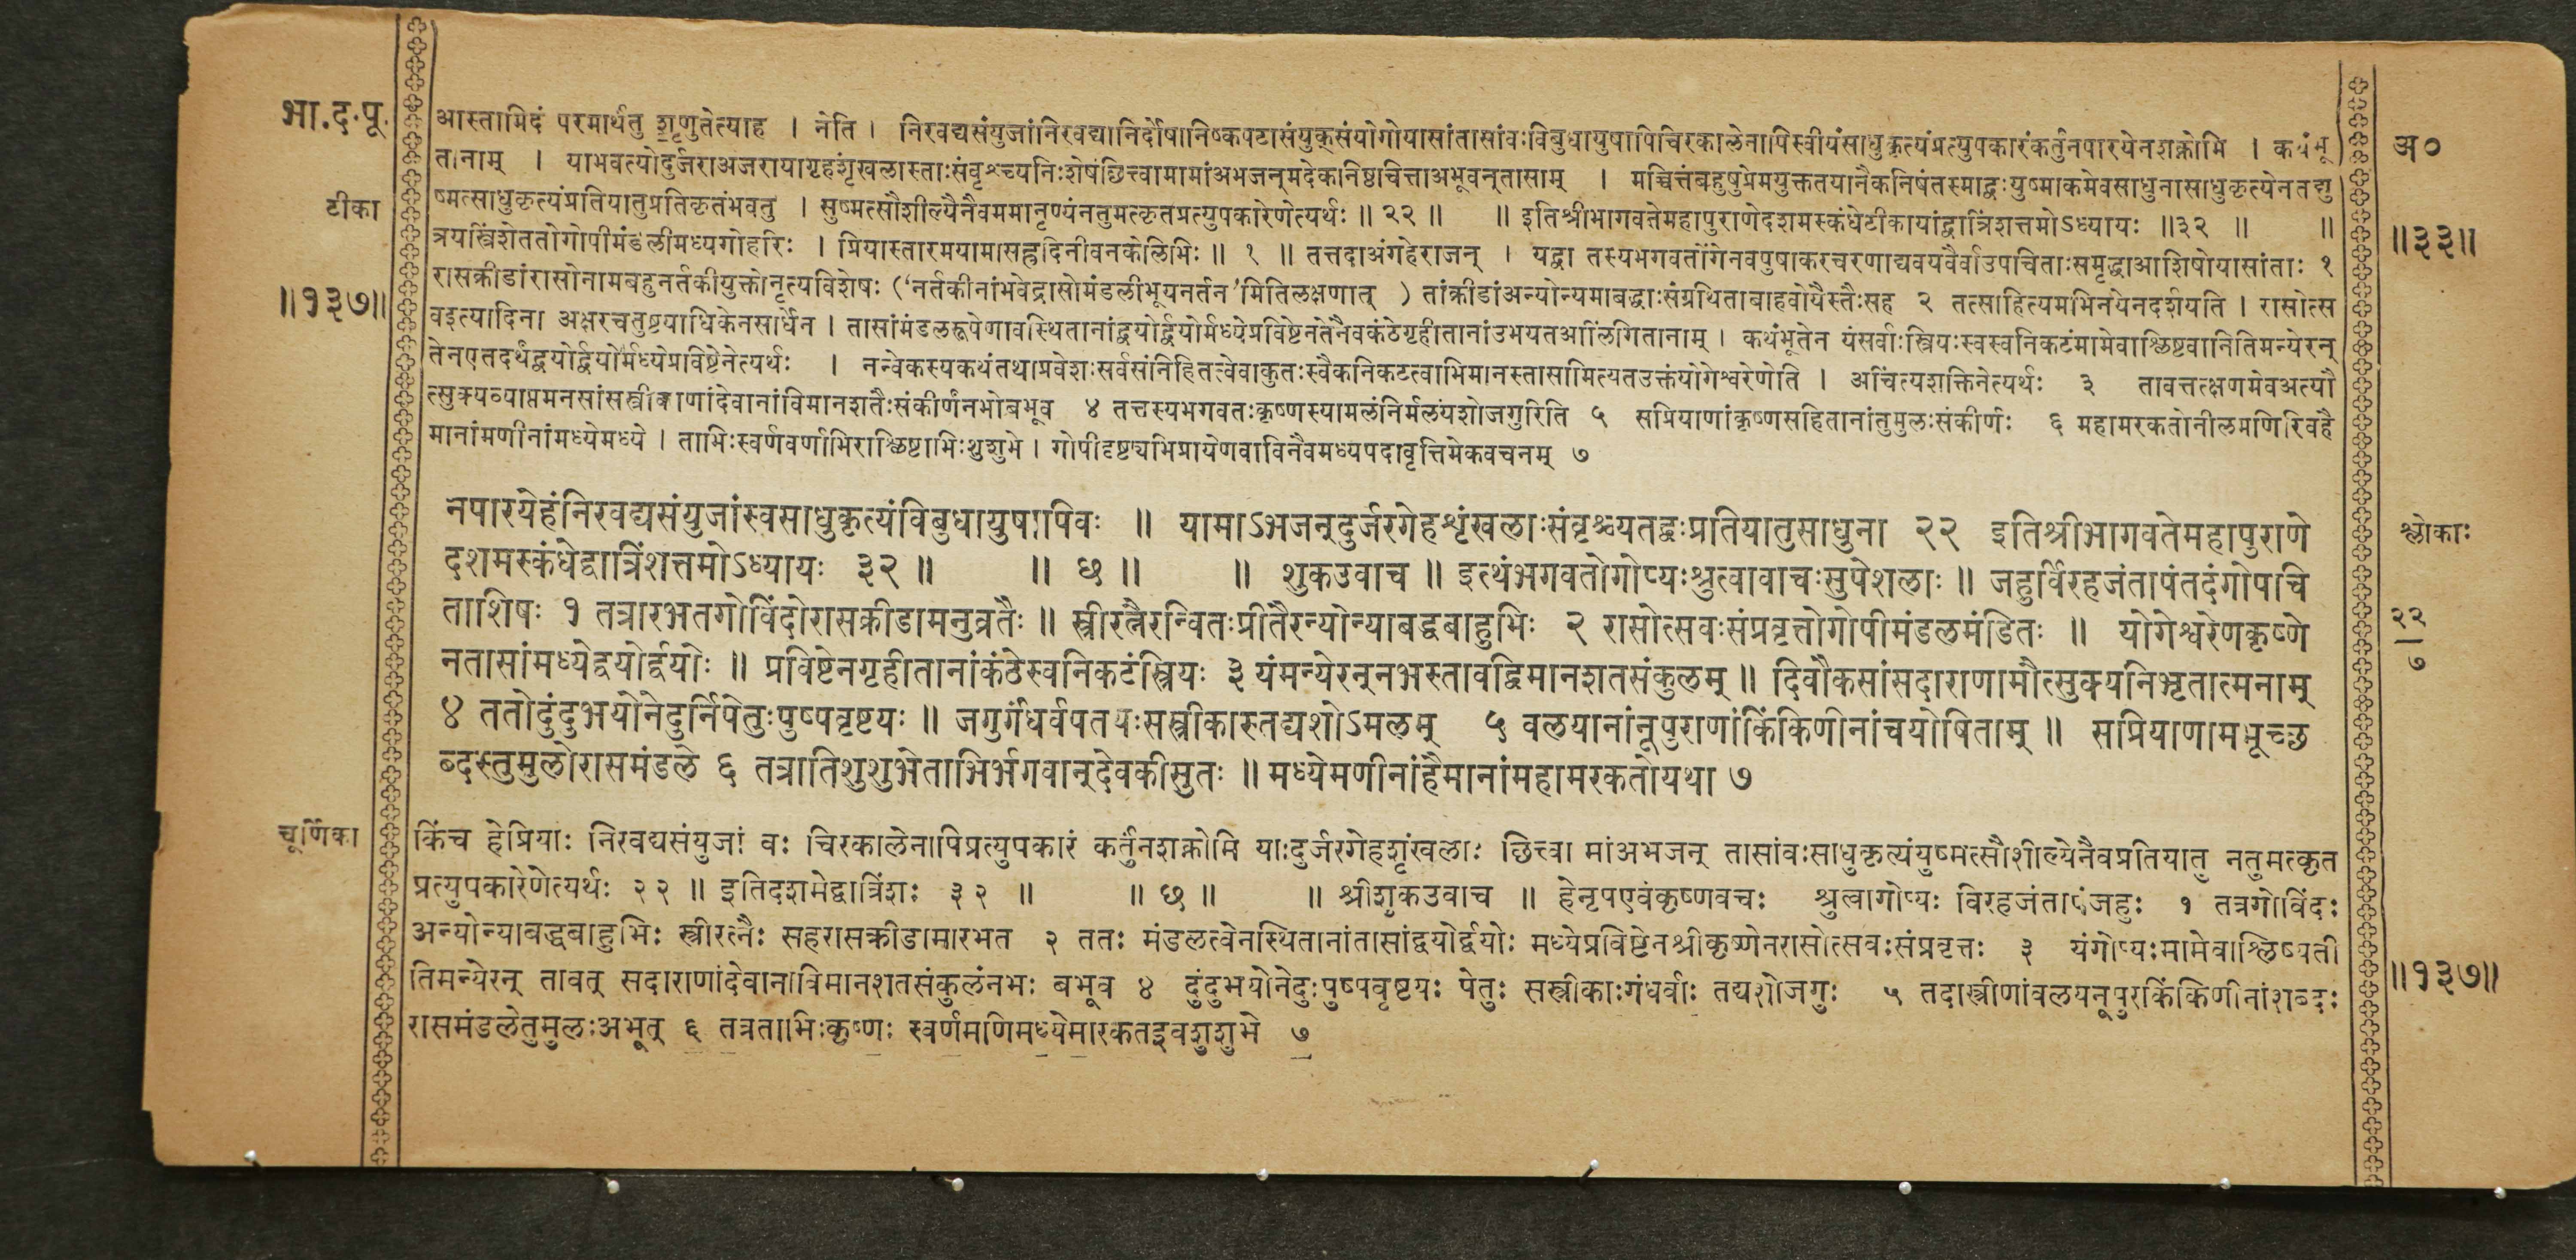 भा.द.पू.
अ०
आस्तामिदं परमार्थंतु शृणुतेत्याह । नेति । निरवद्यसंयुजांनिरवद्यानिर्दोषानिष्कपटासंयुक्संयोगोयासांतासांवःविबुधायुषापिचिरकालेनापिस्वीयंसाधुकृत्यंप्रत्युपकारंकर्तुंनपारयेनशक्नोमि । कथंभू
तानाम् । याभवत्योदुर्जराअजरायागृहशृंखलास्ताःसंवृश्च्यनिःशेषंछित्त्वामामांअभजन्मदेकनिष्ठचित्ताअभूवन्तासाम् । मच्चित्तंबहुषुप्रेमयुक्ततयानैकनिष्ठंतस्माद्वःयुष्माकमेवसाधुनासाधुकृत्येनतद्यु
टीका
ष्मत्साधुकृत्यंप्रतियातुप्रतिकृतंभवतु । सुष्मत्सौशील्यैनैवममानृण्यंनतुमत्कृतप्रत्युपकारेणेत्यर्थः ॥ २२ ॥ ॥ इतिश्रीभागवतेमहापुराणेदशमस्कंधेटीकायांद्वात्रिंशत्तमोऽध्यायः ॥३२ ॥ ॥
॥३३॥
त्रयस्त्रिंशेततोगोपीमंडलीमध्यगोहरिः । प्रियास्तारमयामासह्रदिनीवनकेलिभिः ॥ १ ॥ तत्तदाअंगहेराजन् । यद्वा तस्यभगवतोंगेनवपुषाकरचरणाद्यवयवैर्वाउपचिताःसमृद्धाआशिषोयासांताः १
रासक्रीडांरासोनामबहुनर्तकीयुक्तोनृत्यविशेषः (‘नर्तकीनांभवेद्रासोमंडलीभूयनर्तन’मितिलक्षणात् ) तांक्रीडांअन्योन्यमाबद्धाःसंग्रथिताबाहवोयैस्तैःसह २ तत्साहित्यमभिनयेनदर्शयति । रासोत्स
॥१३७॥
वइत्यादिना अक्षरचतुष्टयाधिकेनसार्धेन । तासांमंडलरूपेणावस्थितानांद्वयोर्द्वयोर्मध्येप्रविष्टेनतेनैवकंठेगृहीतानांउभयतआलिंगितानाम् । कथंभूतेन यंसर्वाःस्त्रियःस्वस्वनिकटंमामेवाश्लिष्टवानितिमन्येरन्
तेनएतदर्थंद्वयोर्द्वयोर्मध्येप्रविष्टेनेत्यर्थः । नन्वेकस्यकथंतथाप्रवेशःसर्वसंनिहितत्वेवाकुतःस्वैकनिकटत्वाभिमानस्तासामित्यतउक्तंयोगेश्वरेणेति । अचिंत्यशक्तिनेत्यर्थः ३ तावत्तत्क्षणमेवअत्यौ
त्सुक्यव्याप्तमनसांसस्त्रीकाणांदेवानांविमानशतैःसंकीर्णंनभोबभूव ४ तत्तस्यभगवतःकृष्णस्यामलंनिर्मलंयशोजगुरिति ५ सप्रियाणांकृष्णसहितानांतुमुलःसंकीर्णः ६ महामरकतोनीलमणिरिवहै
मानांमणीनांमध्येमध्ये । ताभिःस्वर्णवर्णाभिराश्लिष्टाभिःशुशुभे । गोपीदृष्ट्यभिप्रायेणवाविनैवमध्यपदावृत्तिमेकवचनम् ७
नपारयेहंनिरवद्यसंयुजांस्वसाधुकृत्यंविबुधायुषापिवः ॥ यामाऽभजन्दुर्जरगेहशृंखलाःसंवृश्चयतद्वःप्रतियातुसाधुना २२ इतिश्रीभागवतेमहापुराणे
श्लोकाः
दशमस्कंधेद्वात्रिंशत्तमोऽध्यायः ३२ ॥ ॥ छ ॥ ॥ शुकउवाच ॥ इत्थंभगवतोगोप्यःश्रुत्वावाचःसुपेशलाः ॥ जहुर्विरहजंतापंतदंगोपचि
ताशिषः १ तत्रारभतगोविंदोरासक्रीडामनुव्रतैः ॥ स्त्रीरत्नैरन्वितःप्रीतैरन्योन्याबद्धबाहुभिः २ रासोत्सवःसंप्रवृत्तोगोपीमंडलमंडितः ॥ योगेश्वरेणकृष्णे
२२
७
नतासांमध्येद्वयोर्द्वयोः ॥ प्रविष्टेनगृहीतानांकंठेस्वनिकटंस्त्रियः ३ यंमन्येरन्नभस्तावद्विमानशतसंकुलम् ॥ दिवौकसांसदाराणामौत्सुक्यनिभृतात्मनाम्
४ ततोदुंदुभयोनेदुर्निपेतुःपुष्पवृष्टयः ॥ जगुर्गंधर्वपतयःसस्त्रीकास्तद्यशोऽमलम् ५ वलयानांनूपुराणांकिंकिणीनांचयोषिताम् ॥ सप्रियाणामभूच्छ
ब्दस्तुमुलोरासमंडले ६ तत्रातिशुशुभेताभिर्भगवान्देवकीसुतः ॥ मध्येमणीनांहैमानांमहामरकतोयथा ७
चूर्णिका
किंच हेप्रियाः निरवद्यसंयुजां वः चिरकालेनापिप्रत्युपकारं कर्तुंनशक्नोमि याःदुर्जरगेहशृंखलाः छित्त्वा मांअभजन् तासांवःसाधुकृत्यंयुष्मत्सौशील्येनैवप्रतियातु नतुमत्कृत
प्रत्युपकारेणेत्यर्थः २२ ॥ इतिदशमेद्वात्रिंशः ३२ ॥ ॥ छ ॥ ॥ श्रीशुकउवाच ॥ हेनृपएवंकृष्णवचः श्रुत्वागोप्यः विरहजंतापंजहुः १ तत्रगोविंदः
अन्योन्याबद्धबाहुभिः स्त्रीरत्नैः सहरासक्रीडामारभत २ ततः मंडलत्वेनस्थितानांतासांद्वयोर्द्वयोः मध्येप्रविष्टेनश्रीकृष्णेनरासोत्सवःसंप्रवृत्तः ३ यंगोप्यःमामेवाश्लिष्यती
तिमन्येरन् तावत् सदाराणांदेवानांविमानशतसंकुलंनभः बभूव ४ दुंदुभयोनेदुःपुष्पवृष्टयः पेतुः सस्त्रीकाःगंधर्वाः तद्यशोजगुः ५ तदास्त्रीणांवलयनूपुरकिंकिणीनांशब्दः
॥१३७॥
रासमंडलेतुमुलःअभूत् ६ तत्रताभिःकृष्णः स्वर्णमणिमध्येमारकतइवशुशुभे ७